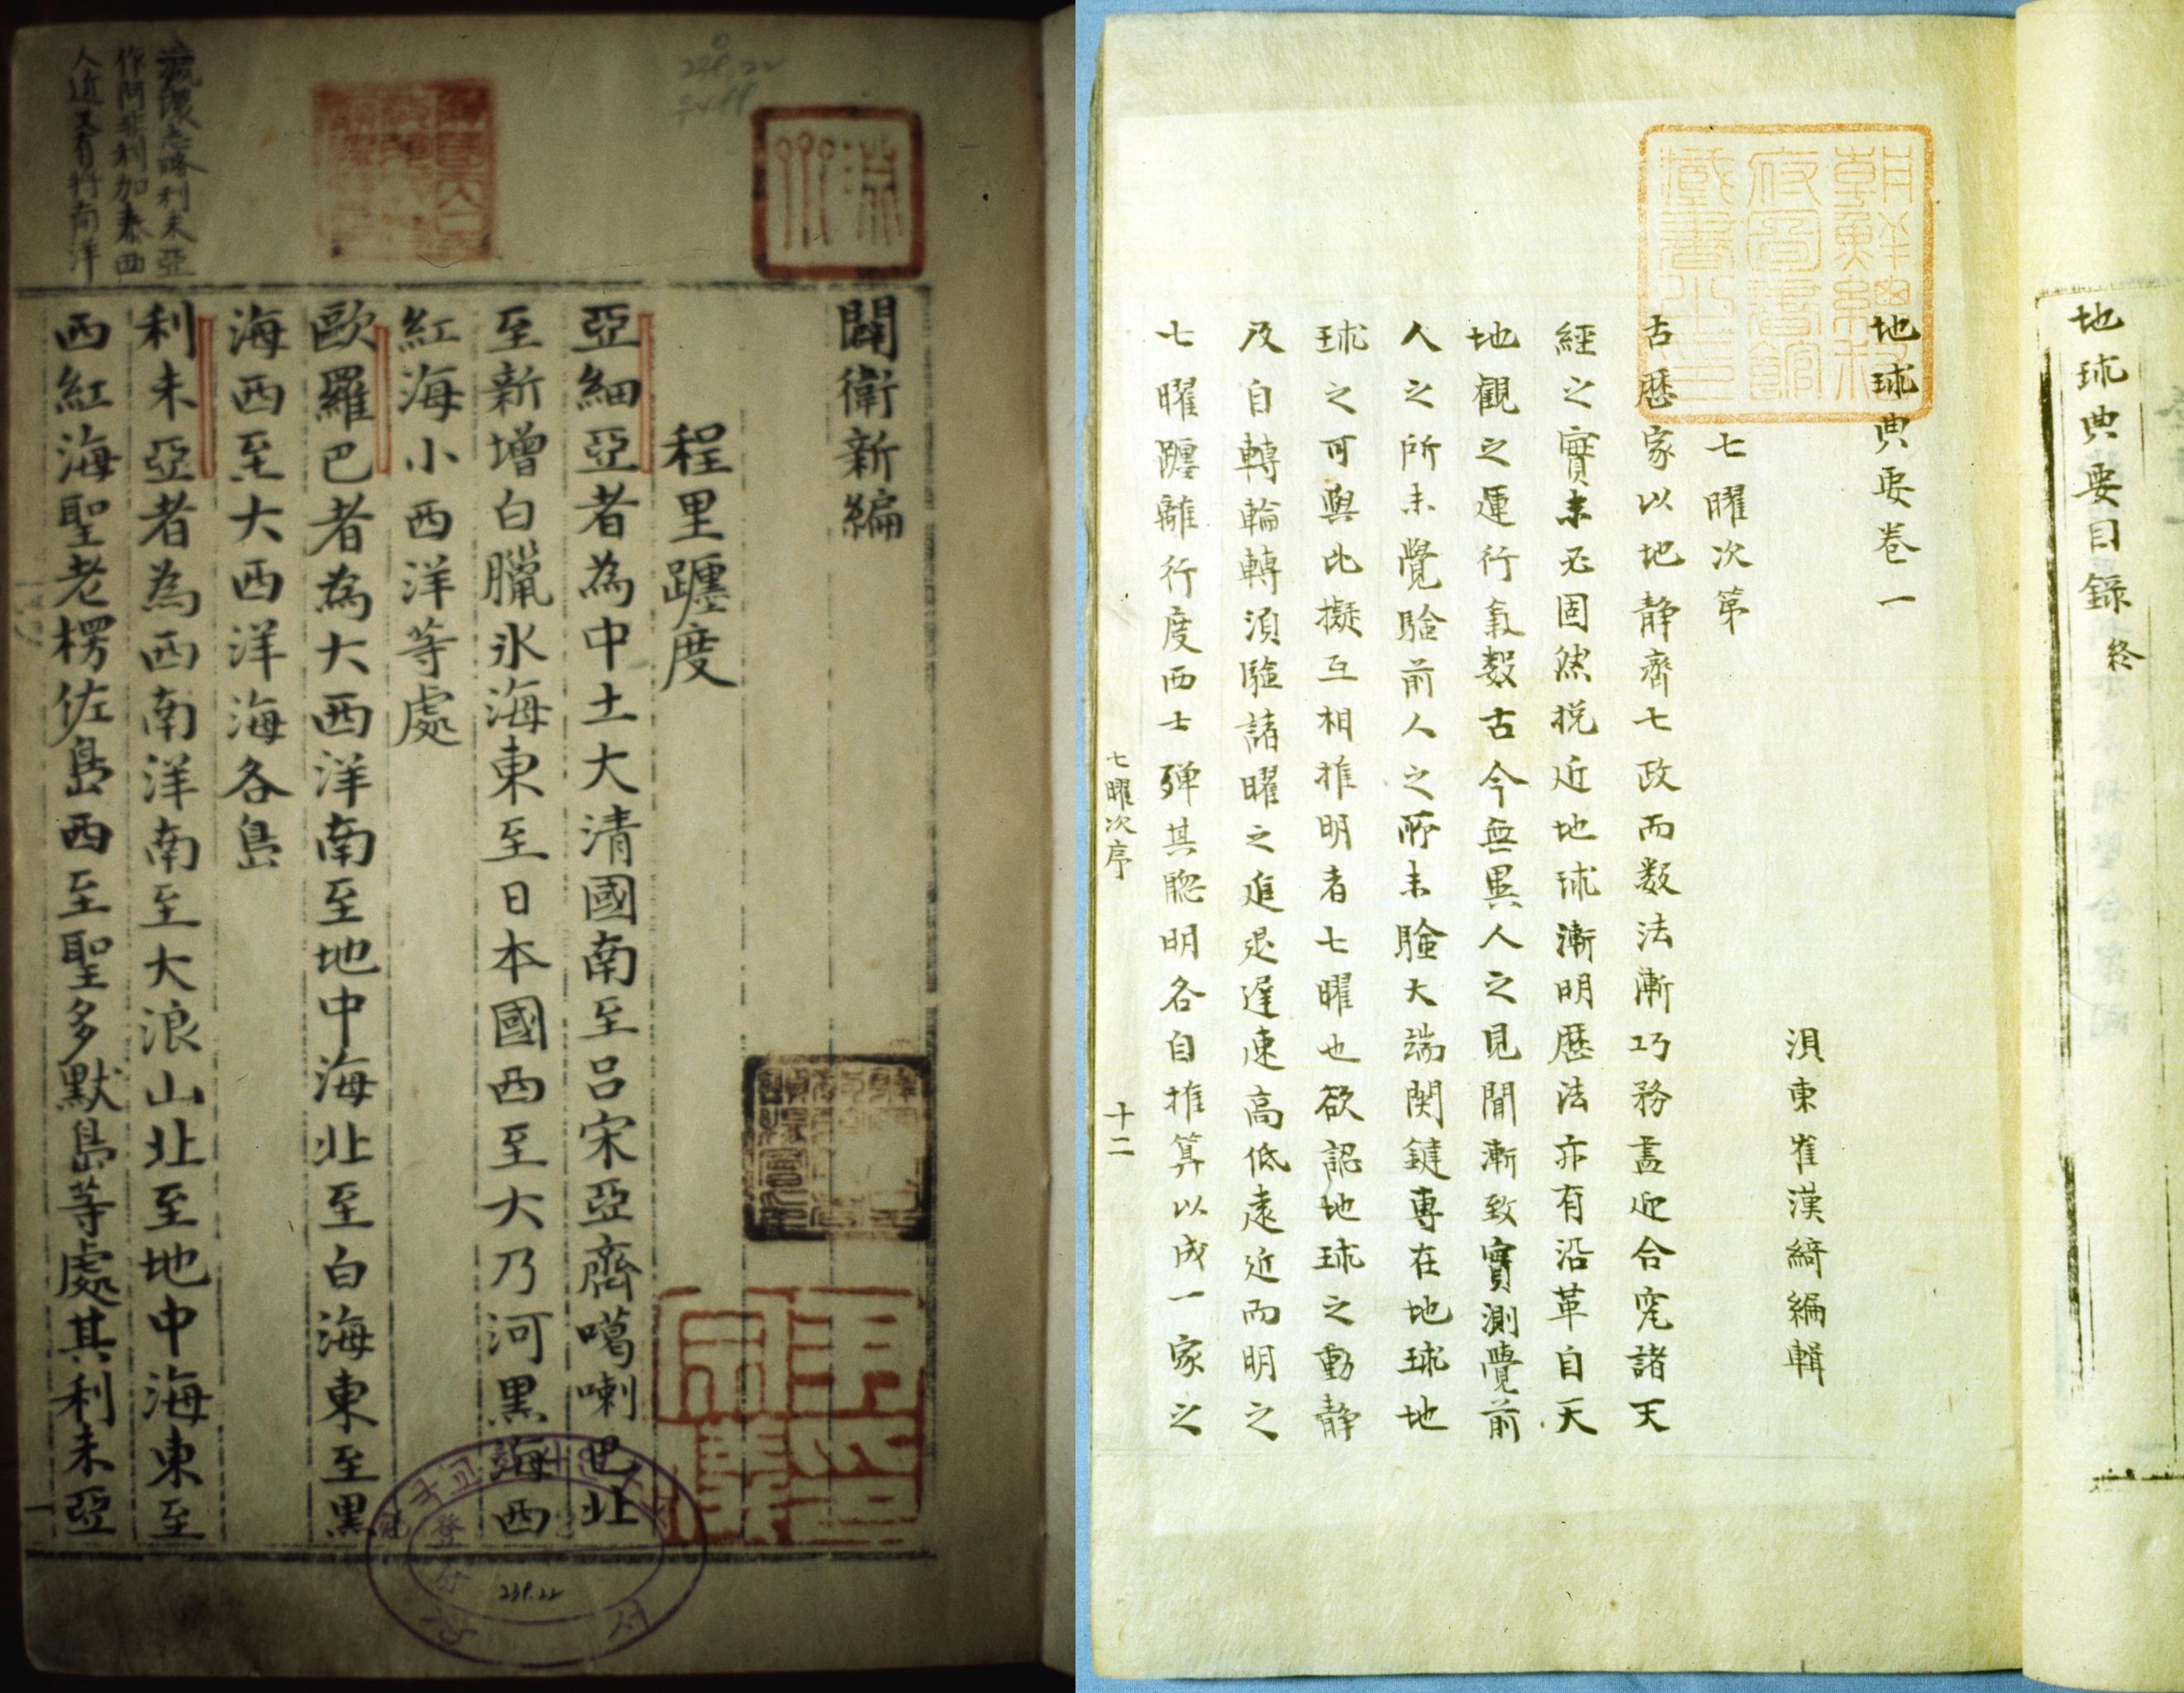 闢衛新編
程里躔度
亞細亞者為中土大清國南至呂宋亞齊噶喇巴北
至新增白臘氷海東至日本國西至大乃河黑海西
紅海小西洋等處
歐羅巴者為大西洋南至地中海北至白海東至黑
海西至大西洋海各島
利未亞者為西南洋南至大浪山北至地中海東至
西紅海聖老楞佐島西至聖多默島等處其利未亞
一
瀛環志略利未亞
作阿非利加泰西
人近又有將南洋
239.22
地球典要目錄終
朝鮮總督府圖書館藏書之印
地球典要卷一
浿東崔漢綺編輯
七曜次第
古歷家以地静齊七政而数法漸巧務盡迎合窕諸天
經之實未必固然挩近地球漸明歷法亦有沿革自天
地觀之運行氣數古今無異人之見聞漸致實測覺前
人之所未覺驗前人之所未驗大端関鍵專在地球地
球之可與比擬互相推明者七曜也欲認地球之動静
及自轉輪轉須驗諸曜之進退遲速高低遠近而明之
七曜躔離行度西士殫其聰明各自推算以成一家之
七曜次序
十二